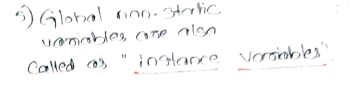 5) Global non-static
variables are also
called as "instance variables"